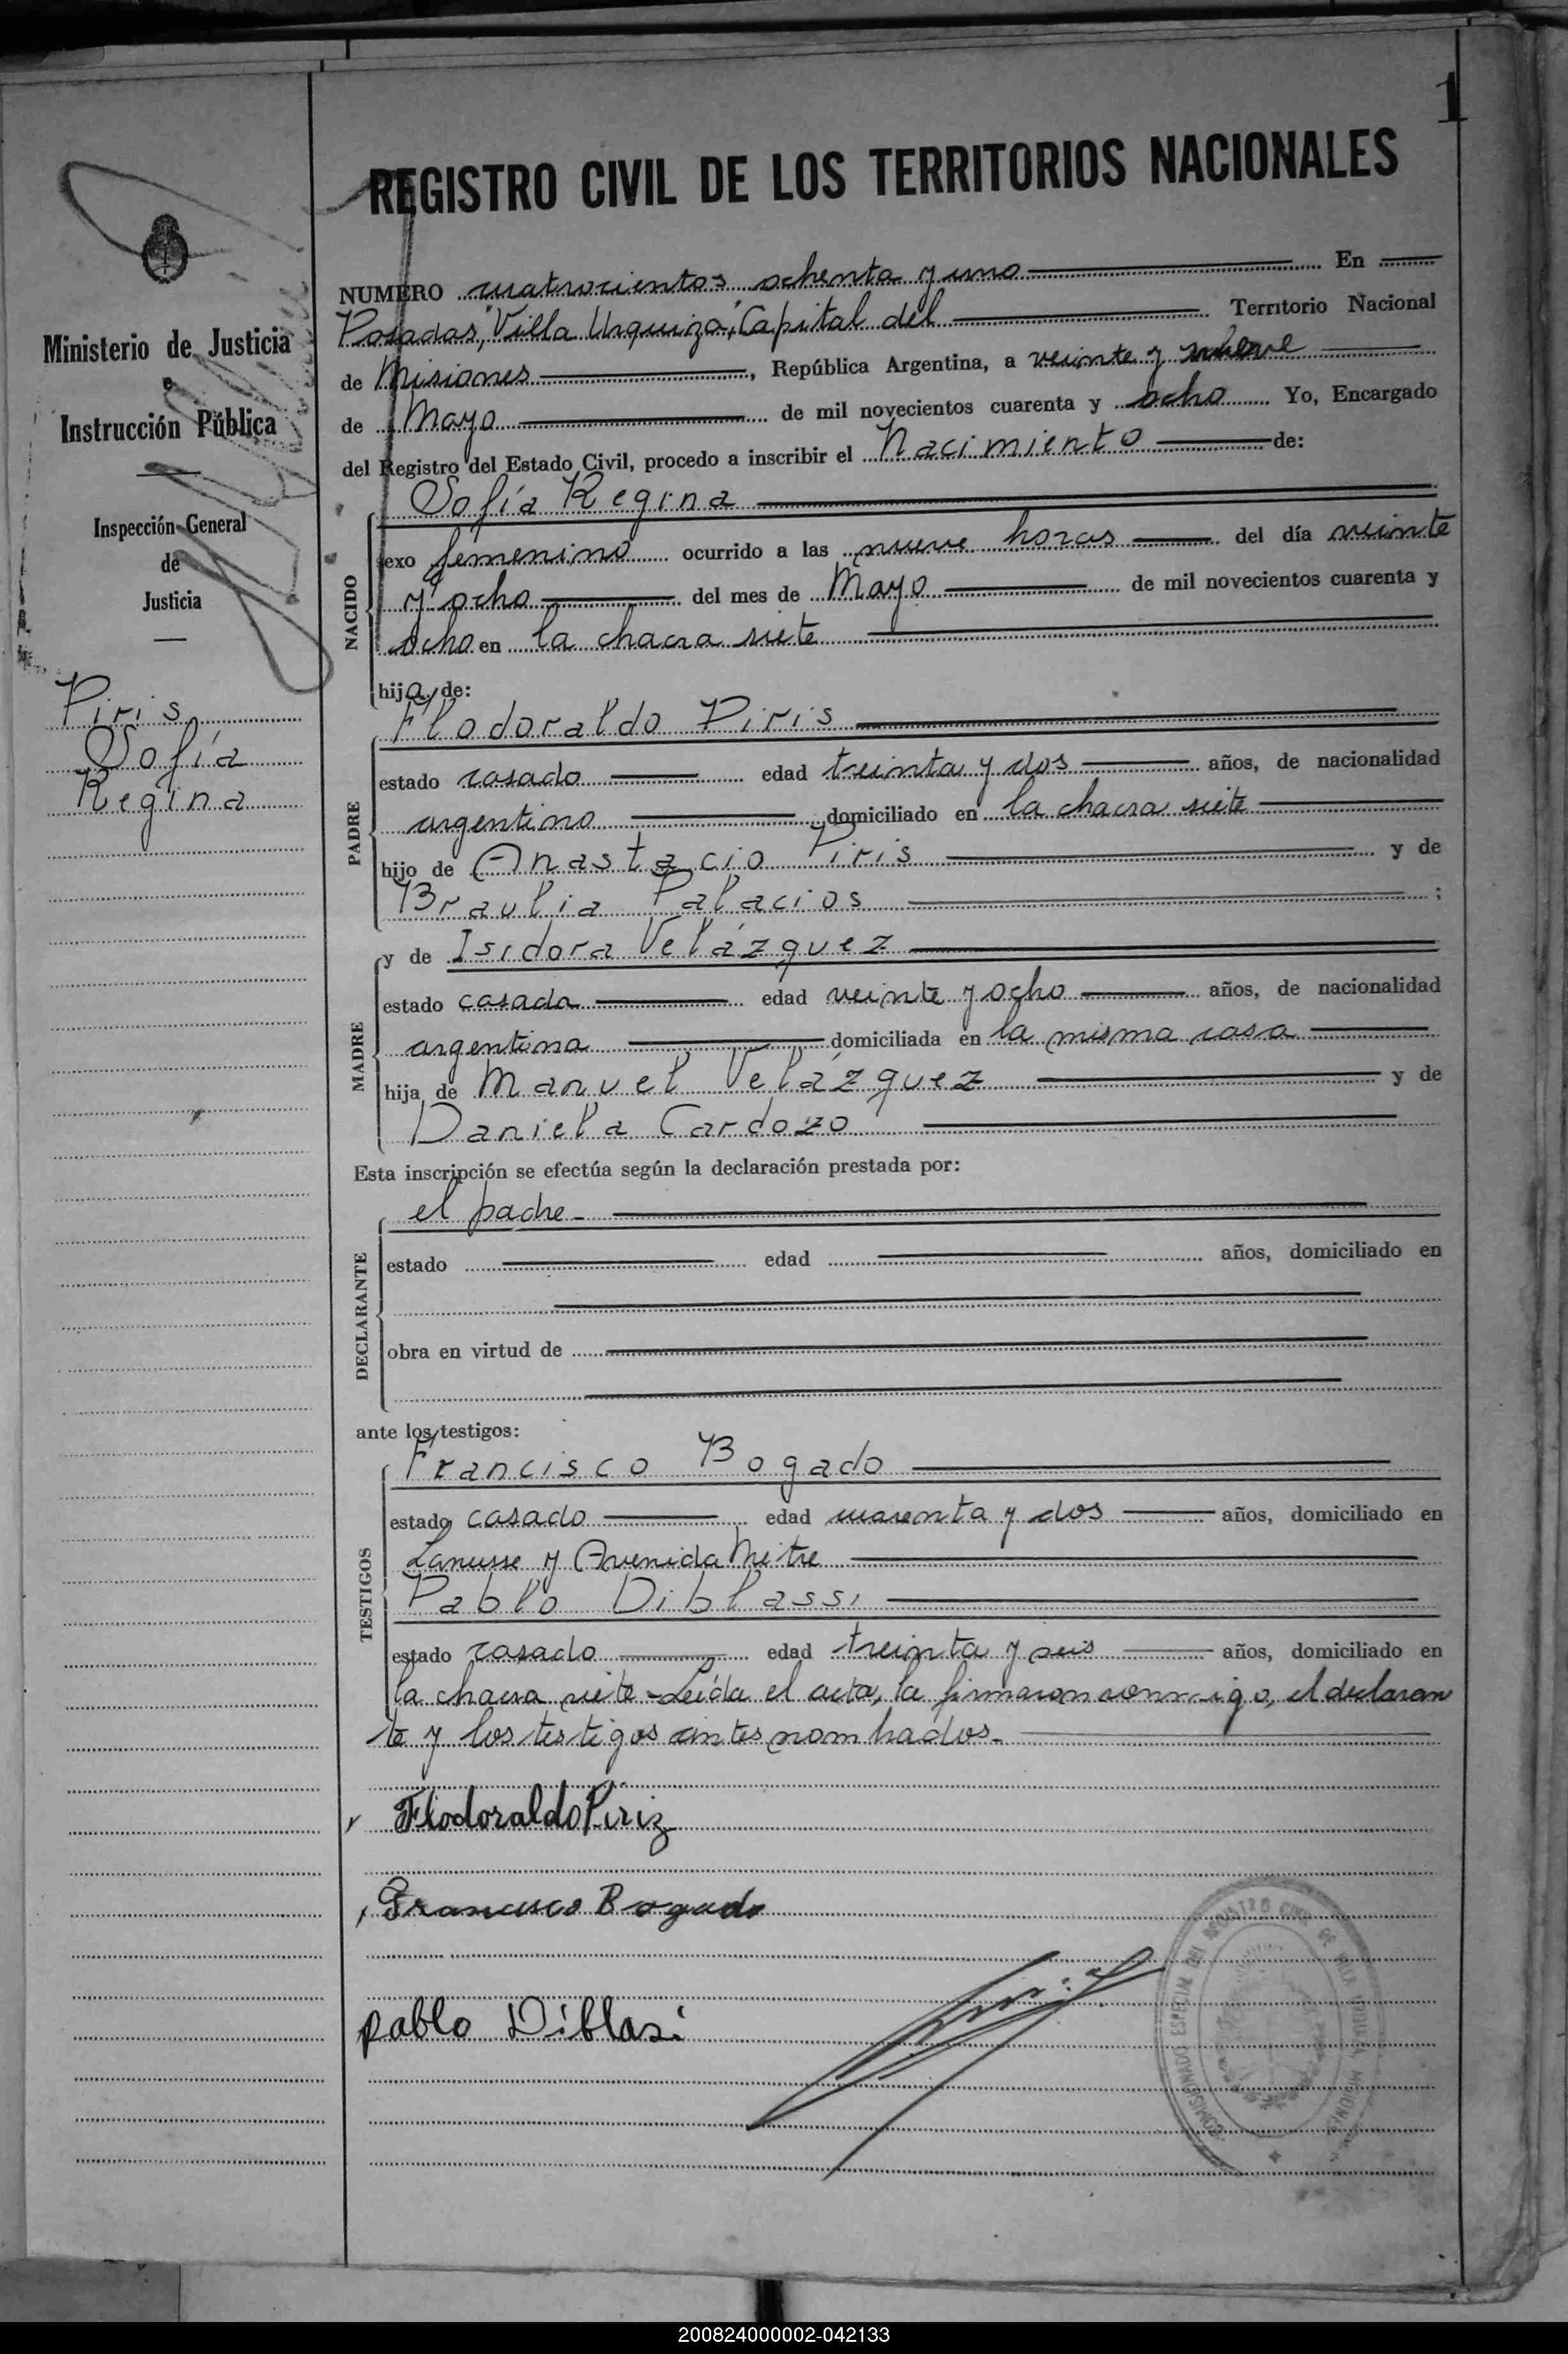 1
REGISTRO CIVIL DE LOS TERRITORIOS NACIONALES
Ministerio de Justicia
e
Instrucción Pública
Inspección General
de
Justicia
Piris
Sofía
Regina
NUMERO cuatrocientos ochenta y uno En
Posadas, "Villa Urquiza", Capital del Territorio Nacional
de Misiones, República Argentina, a veinte y nueve
de Mayo de mil novecientos cuarenta y ocho Yo, Encargado
del Registro del Estado Civil, procedo a inscribir el Nacimiento de:
NACIDO
Sofía Regina
sexo femenino ocurrido a las nueve horas del día veinte
y ocho del mes de Mayo de mil novecientos cuarenta y
ocho en la chacra siete
hija de:
PADRE
Flodoraldo Piris
estado casado edad treinta y dos años, de nacionalidad
argentino domiciliado en la chacra siete
hijo de Anastacio Piris y de
Braulia Palacios ;
MADRE
y de Isidora Velázquez
estado casada edad veinte y ocho años, de nacionalidad
argentina domiciliada en la misma casa
hija de Manuel Velázquez y de
Daniela Cardozo
Esta inscripción se efectúa según la declaración prestada por:
DECLARANTE
el padre-
estado edad años, domiciliado en
obra en virtud de
ante los testigos:
TESTIGOS
Francisco Bogado
estado casado edad cuarenta y dos años, domiciliado en
Lanusse y Avenida Mitre
Pablo Diblassi
estado casado edad treinta y seis años, domiciliado en
la chacra siete - Leída el acta, la firmaron conmigo, el declaran
te y los testigos antes nombrados.-
Flodoraldo Piriz
Francisco Bogado
pablo Diblasi
COMISIONADO ESPECIAL DEL REGISTRO CIVIL DE VILLA URQUIZA MISIONES
200824000002-042133